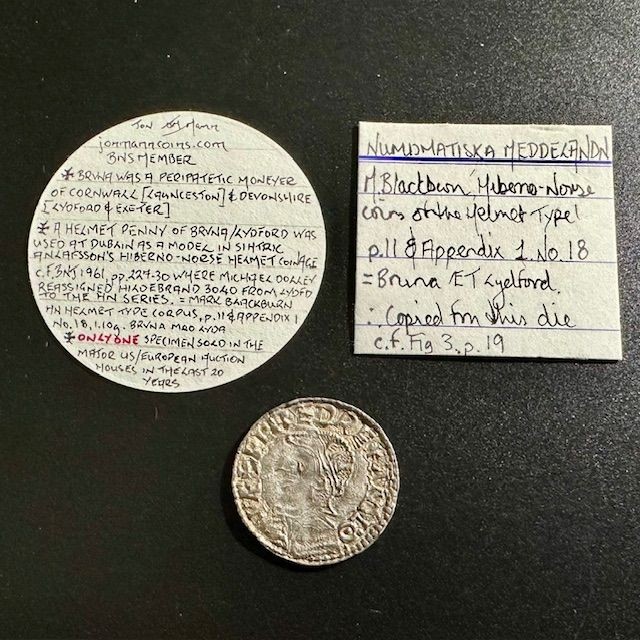 Jon Mann
jonmanncoins.com
BNS MEMBER
* BRUNA WAS A PERIPATETIC MONEYER
OF CORNWALL [LAUNCESTON] & DEVONSHIRE
[LYDFORD & EXETER]
* A HELMET PENNY OF BRUNA/LYDFORD WAS
USED AT DUBLIN AS A MODEL IN SIHTRIC
ANLAFSSON'S HIBERNO-NORSE HELMET COINAGE
c.f. BNJ 1961, pp. 227-30 WHERE MICHAEL DOLLEY
REASSIGNED HILDEBRAND 3040 FROM LYDFD
TO THE HN SERIES. = MARK BLACKBURN
HN HELMET TYPE CORPUS, p.11 & APPENDIX 1
No. 18, 1.10g. BRUNA M∩O LYDA
* ONLY ONE SPECIMEN SOLD IN THE
MAJOR US/EUROPEAN AUCTION
HOUSES IN THE LAST 20
YEARS
NUMISMATISKA MEDDELANDN
M. Blackburn, Hiberno-Norse
coins of the Helmet Type'
p.11 & Appendix 1. No. 18
= Bruna ÆT Lydford.
∴ Copied from this die
c.f. Fig 3, p. 19